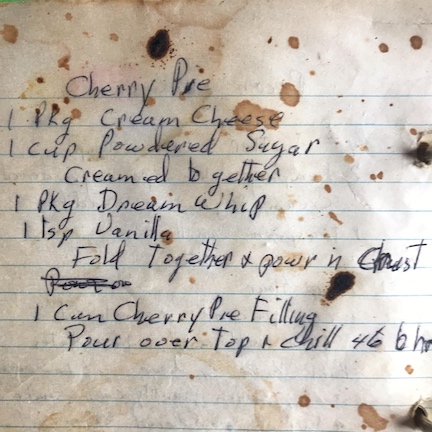 Cherry Pie
1 Pkg Cream Cheese
1 cup Powdered Sugar
Creamed together
1 Pkg Dream Whip
1 tsp Vanilla
Fold Together & powr in Crust
1 Can Cherry Pie Filling
Pour over Top & chill 4 to 6 hr